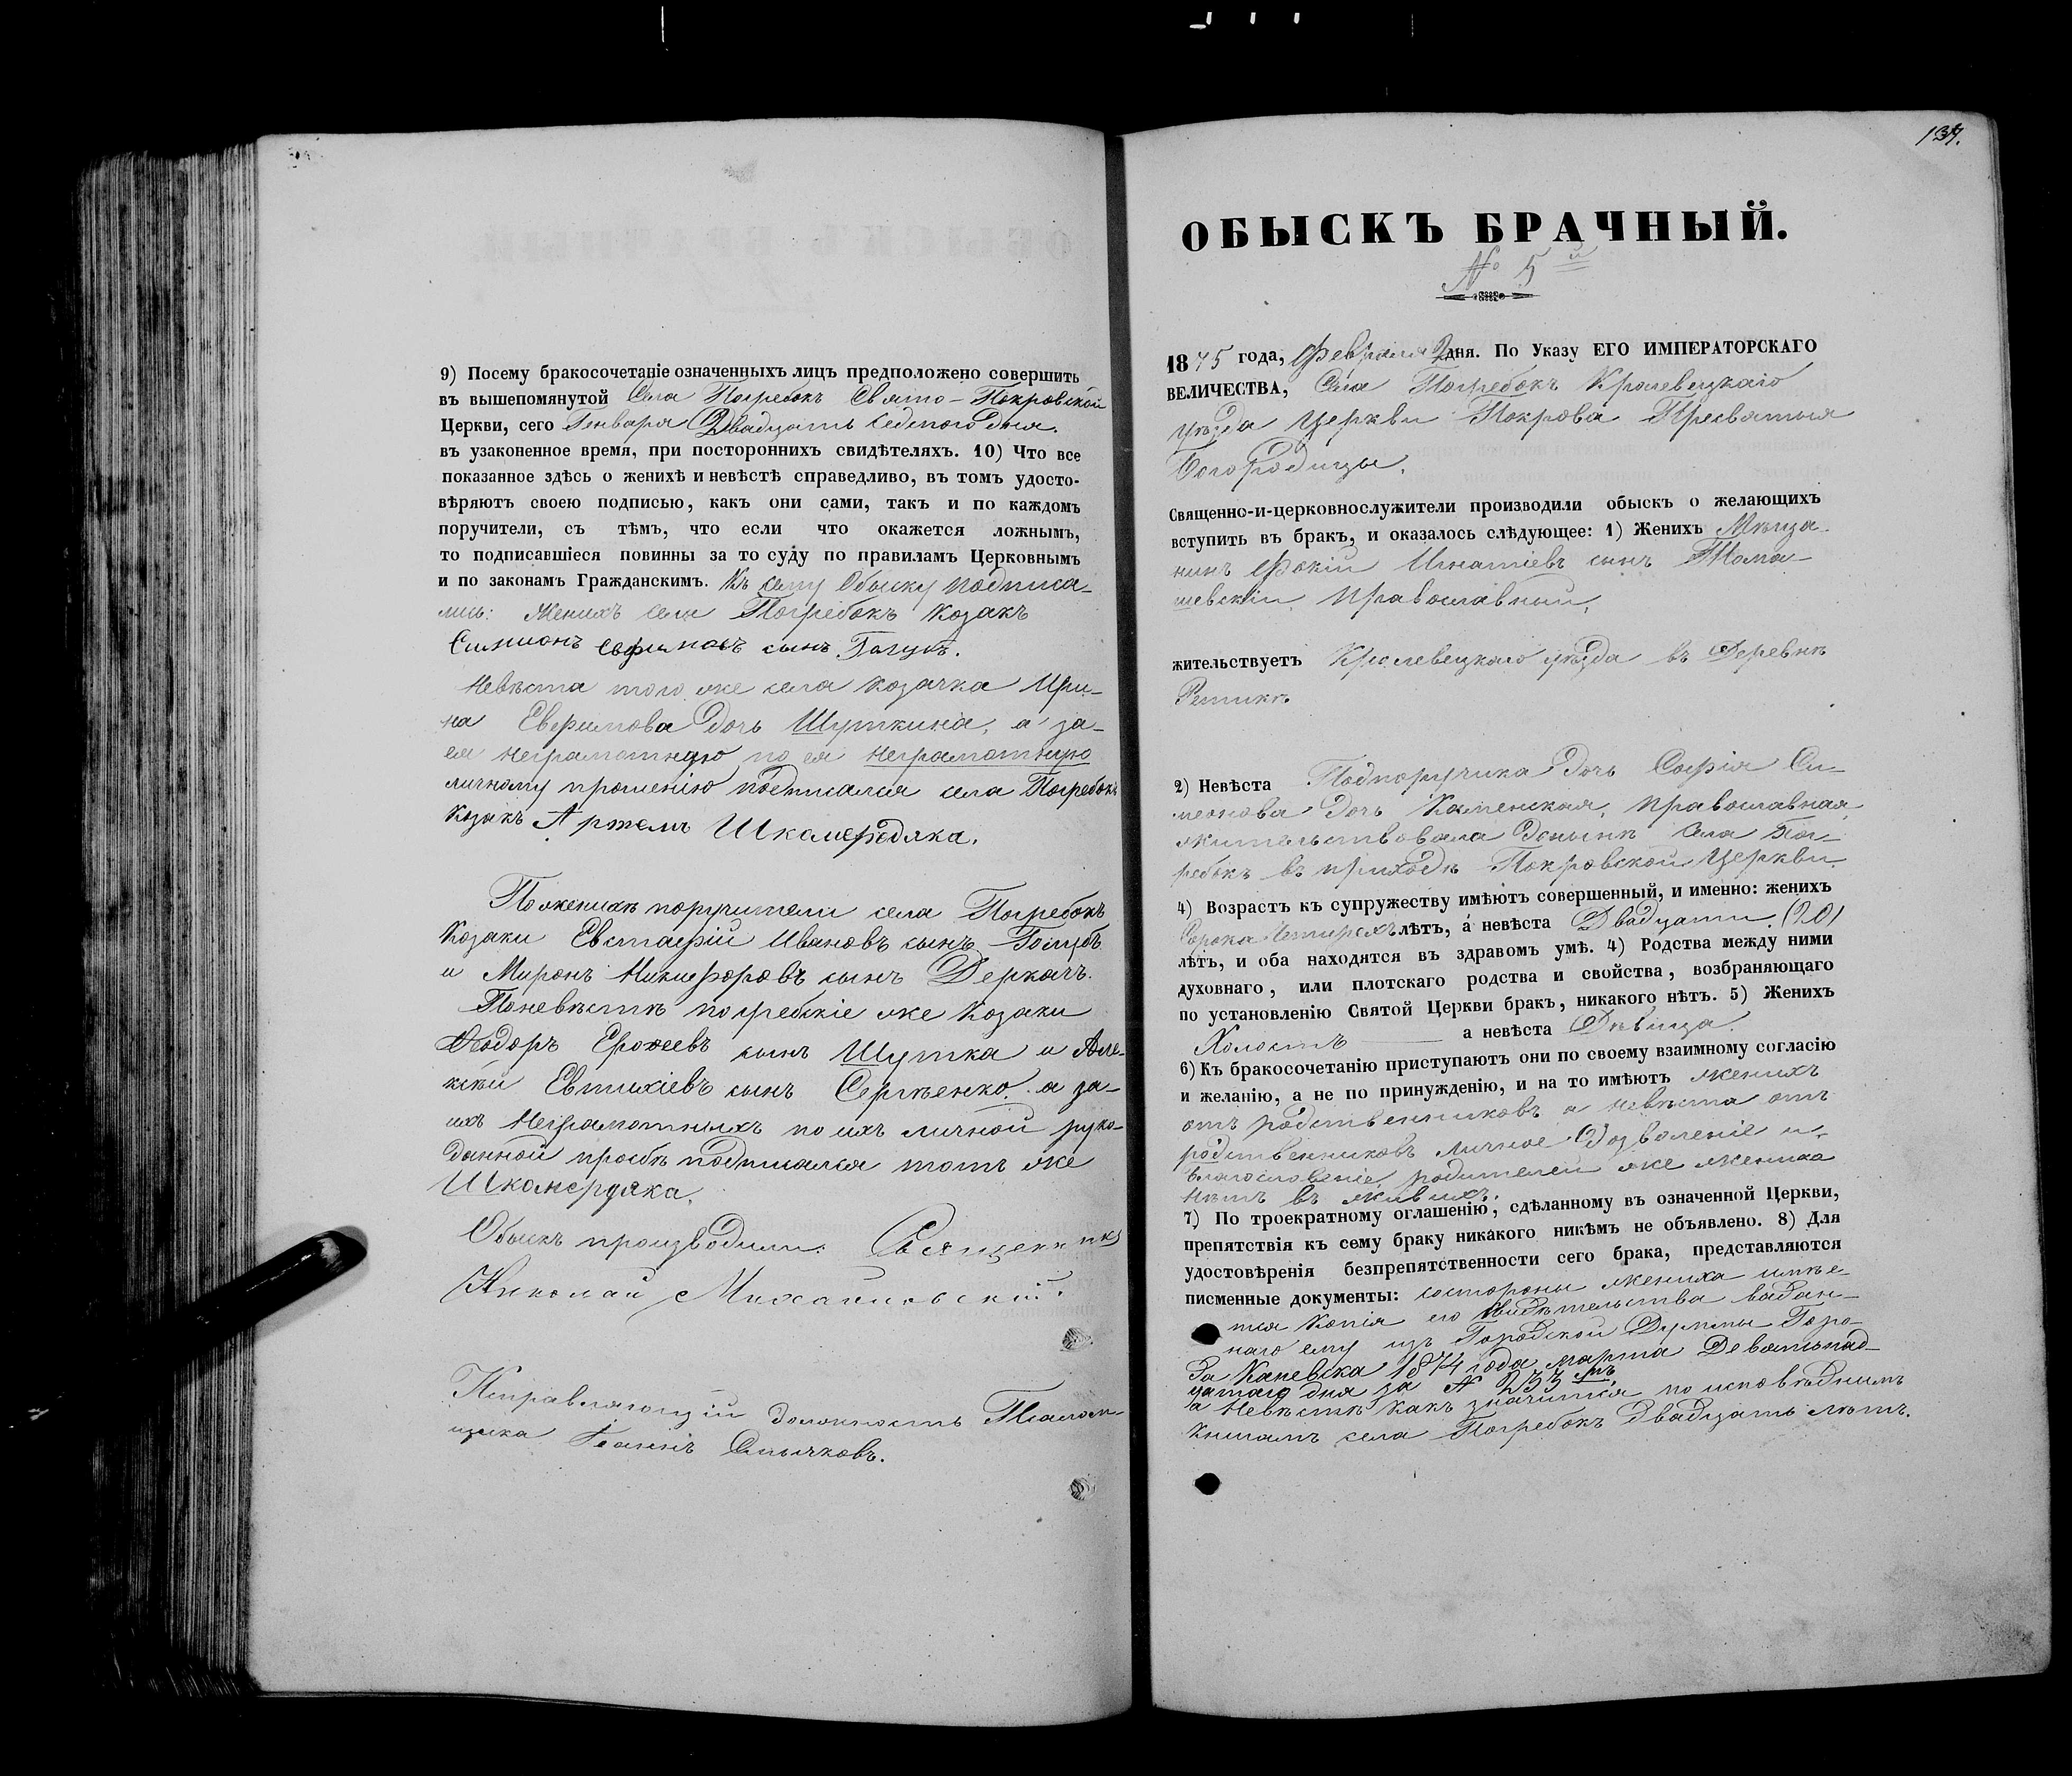 9) Посему бракосочетаніе означенныхъ лицъ предположено совершить
въ вышепомянутой Села Погребокъ Свято-Покровской
Церкви, сего Генваря Двадцать седмого дня.
въ узаконенное время, при постороннихъ свидѣтеляхъ. 10) Что все
показанное здѣсь о женихѣ и невѣстѣ справедливо, въ томъ удосто-
вѣряютъ своею подписью, какъ они сами, такъ и по каждомъ
поручители, съ тѣмъ, что если что окажется ложнымъ,
то подписавшіеся повинны за то суду по правиламъ Церковнымъ
и по законамъ Гражданскимъ. Къ сему Обыску подписа-
лись: Женихъ села Погребокъ Козакъ
Симионъ Ефимовъ сынъ
Невѣста того же села Козачка Ири-
на Евфимова дочь Шуткина, а за
ея неграмотную по ея неграмотную
личному прошенію подписался села Погребокъ
Козакъ Артемъ Шкамердяка.
По женихѣ поручители села Погребокъ
Козаки Евстафій Ивановъ сынъ Голубъ
и Миронъ Никифоровъ сынъ Деркачъ.
По невѣстѣ погребскіе же Козаки
Феодоръ Ерофеевъ сынъ Шутка и Але-
ксѣй Евтихіевъ сынъ Сергѣенко. а за
ихъ Неграмотныхъ по ихъ личной руко-
данной просьбѣ подписался тотъ же
Шкамердяка.
Обыскъ производили: Священникъ
Николай Михайловскій.
Исправляющій должность Псалом-
щика Іоаннъ Смычковъ.
137.
ОБЫСКЪ БРАЧНЫЙ.
№ 5й
1875 года, Февраля 2 дня. По Указу ЕГО ИМПЕРАТОРСКАГО
ВЕЛИЧЕСТВА, Села Погребокъ Кролевецкаго
уѣзда Церкви Покрова Пресвятыя
Богородицы.
Священно-и-церковнослужители производили обыскъ о желающихъ
вступить въ бракъ, и оказалось слѣдующее: 1) Женихъ Мѣща-
нинъ Фокій Игнатіевъ сынъ Тома-
шевскій, православный,
жительствуетъ Кролевецкаго уѣзда въ Деревнѣ
Ретикъ
2) Невѣста Подпоручика дочь Софія Си-
меонова дочь Каменская, православная,
жительствовала донынѣ села Пог-
ребокъ въ приходѣ Покровской Церкви.
4) Возрастъ къ супружеству имѣютъ совершенный, и именно: женихъ
Сорока четырехъ лѣтъ, а невѣста Двадцати (20)
лѣтъ, и оба находятся въ здравомъ умѣ. 4) Родства между ними
духовнаго, или плотскаго родства и свойства, возбраняющаго
по установленію Святой Церкви бракъ, никакого нѣтъ. 5) Женихъ
Холостъ а невѣста Дѣвица.
6) Къ бракосочетанію приступаютъ они по своему взаимному согласію
и желанію, а не по принужденію, и на то имѣютъ женихъ
отъ родственниковъ а невѣста отъ
родственниковъ личное дозволеніе и
благословеніе, родителей же жениха
нѣтъ въ живыхъ.
7) По троекратному оглашенію, сдѣланному въ означенной Церкви,
препятствія къ сему браку никакого никѣмъ не объявлено. 8) Для
удостовѣренія безпрепятственности сего брака, представляются
писменные документы: состороны жениха имѣе-
тся Копія его свидѣтельства выдан-
наго ему изъ Городской Думы Горо-
да Каневска 1874 года марта Девятьнад-
цатаго дня за № 233
а Невѣстѣ какъ значится по исповѣднымъ
Книгамъ села Погребокъ двадцать лѣтъ.